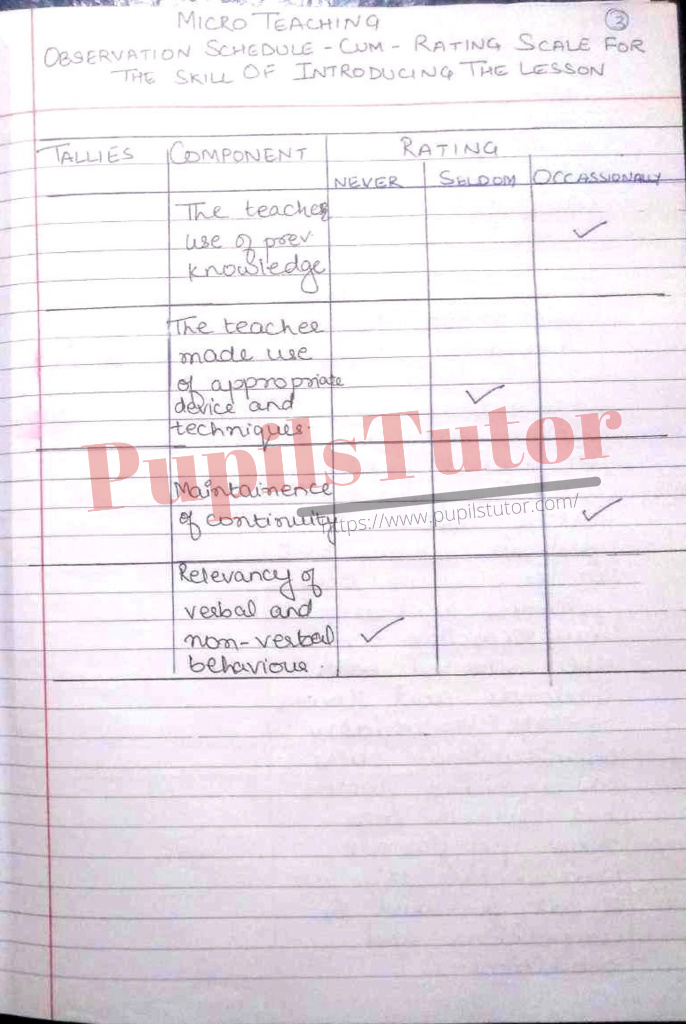 MICRO TEACHING
3
OBSERVATION SCHEDULE - CUM - RATING SCALE FOR
THE SKILL OF INTRODUCING THE LESSON
TALLIES COMPONENT RATING
NEVER SELDOM OCCASSIONALLY
The teacher
use of prev
knowledge
The teacher
made use
of appropriate
device and
techniques.
PupilsTutor
Maintainence
of continuity
https://www.pupilstutor.com/
Relevancy of
verbal and
non-verbal
behaviour.